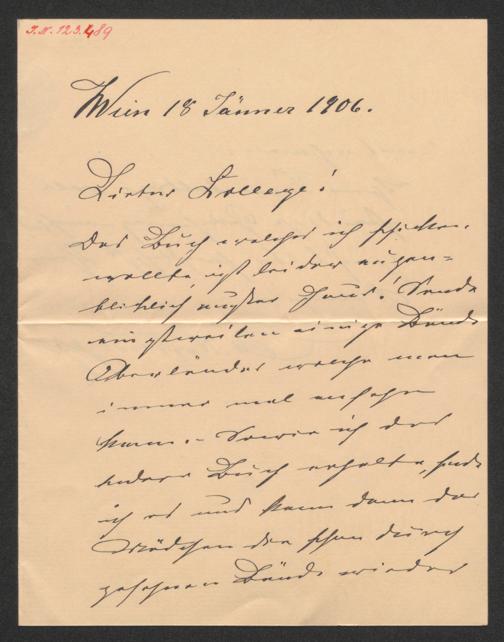 I.N. 123.489
Wien 18 Jänner 1906.
Lieber College!
Das Buch welches ich schicken
wollte, ist leider augen=
blicklich außer Haus. Sende
einstweilen einige Bände
Oberländer welche man
immer mal ansehen
kann. – Sowie ich das
andere Buch erhalte, sende
ich es und kann dann das
Mädchen die schon durch
gesehenen Bände wieder